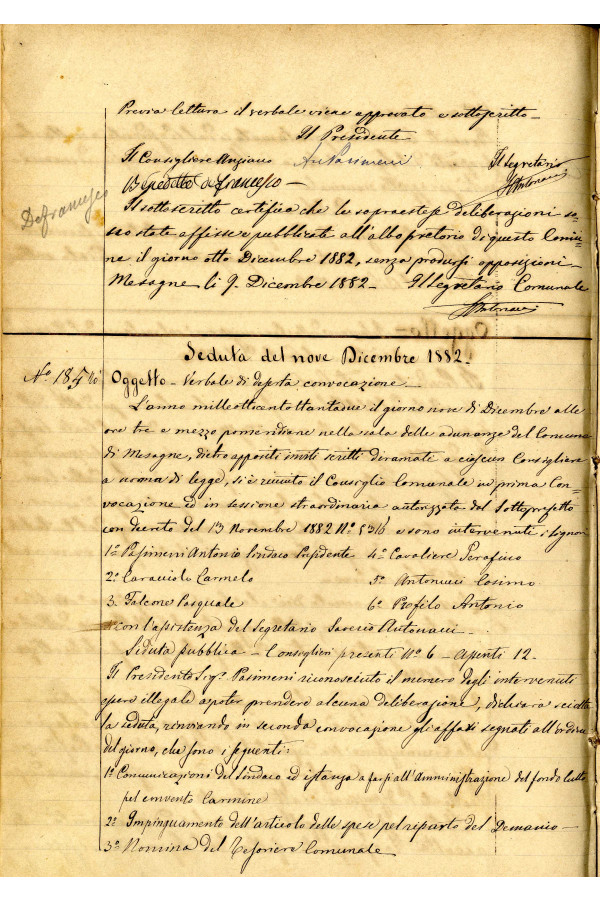 Previa lettura il verbale viene approvato e sottoscritto
Il Presidente
Il Consigliere Anziano Ant Pasimeni Il Segretario
Benedetto Defrancesco SAntonucci
Defrancesco
Il sottoscritto certifica che le sopraestese deliberazioni so-
no state affisse e pubblicate all'albo pretorio di questo Comu-
ne il giorno otto Dicembre 1882, senza prodursi opposizioni
Mesagne li 9. Dicembre 1882 - Il Segretario Comunale
SAntonucci
Seduta del nove Dicembre 1882.
No. 185 Oggetto - Verbale di deserta convocazione
L'anno milleottocentottantadue il giorno nove di Dicembre alle
ore tre e mezzo pomeridiane nella sala delle adunanze del Comune
di Mesagne, dietro appositi inviti scritti diramati a ciascun Consigliere
a norma di legge, si è riunito il Consiglio Comunale in prima Con-
vocazione ed in sessione straordinaria autorizzata dal Sottoprefetto
con decreto del 13 Novembre 1882 No 5316 e sono intervenuti i Signori
1o Pasimeni Antonio Sindaco Presidente 4o Cavaliere Serafino
2o Caraviolo Carmelo 5o Antonucci Cosimo
3. Falcone Pasquale 6o Profilo Antonio
con l'assistenza del Segretario Saverio Antonucci
Seduta pubblica - Consiglieri presenti No 6 - Assenti 12.
Il Presidente Sigr. Pasimeni riconosciuto il numero degli intervenuti
essere illegale a poter prendere alcuna deliberazione, dichiara sciolta
la seduta, rinviando in seconda convocazione gli affari segnati all'ordine
del giorno, che sono i seguenti:
1o Comunicazioni del Sindaco ed istanza a farsi all'Amministrazione del fondo culto
pel convento Carmine
2o Impinguamento dell'articolo delle spese pel riparto del Demanio
3o Nomina del Tesoriere Comunale